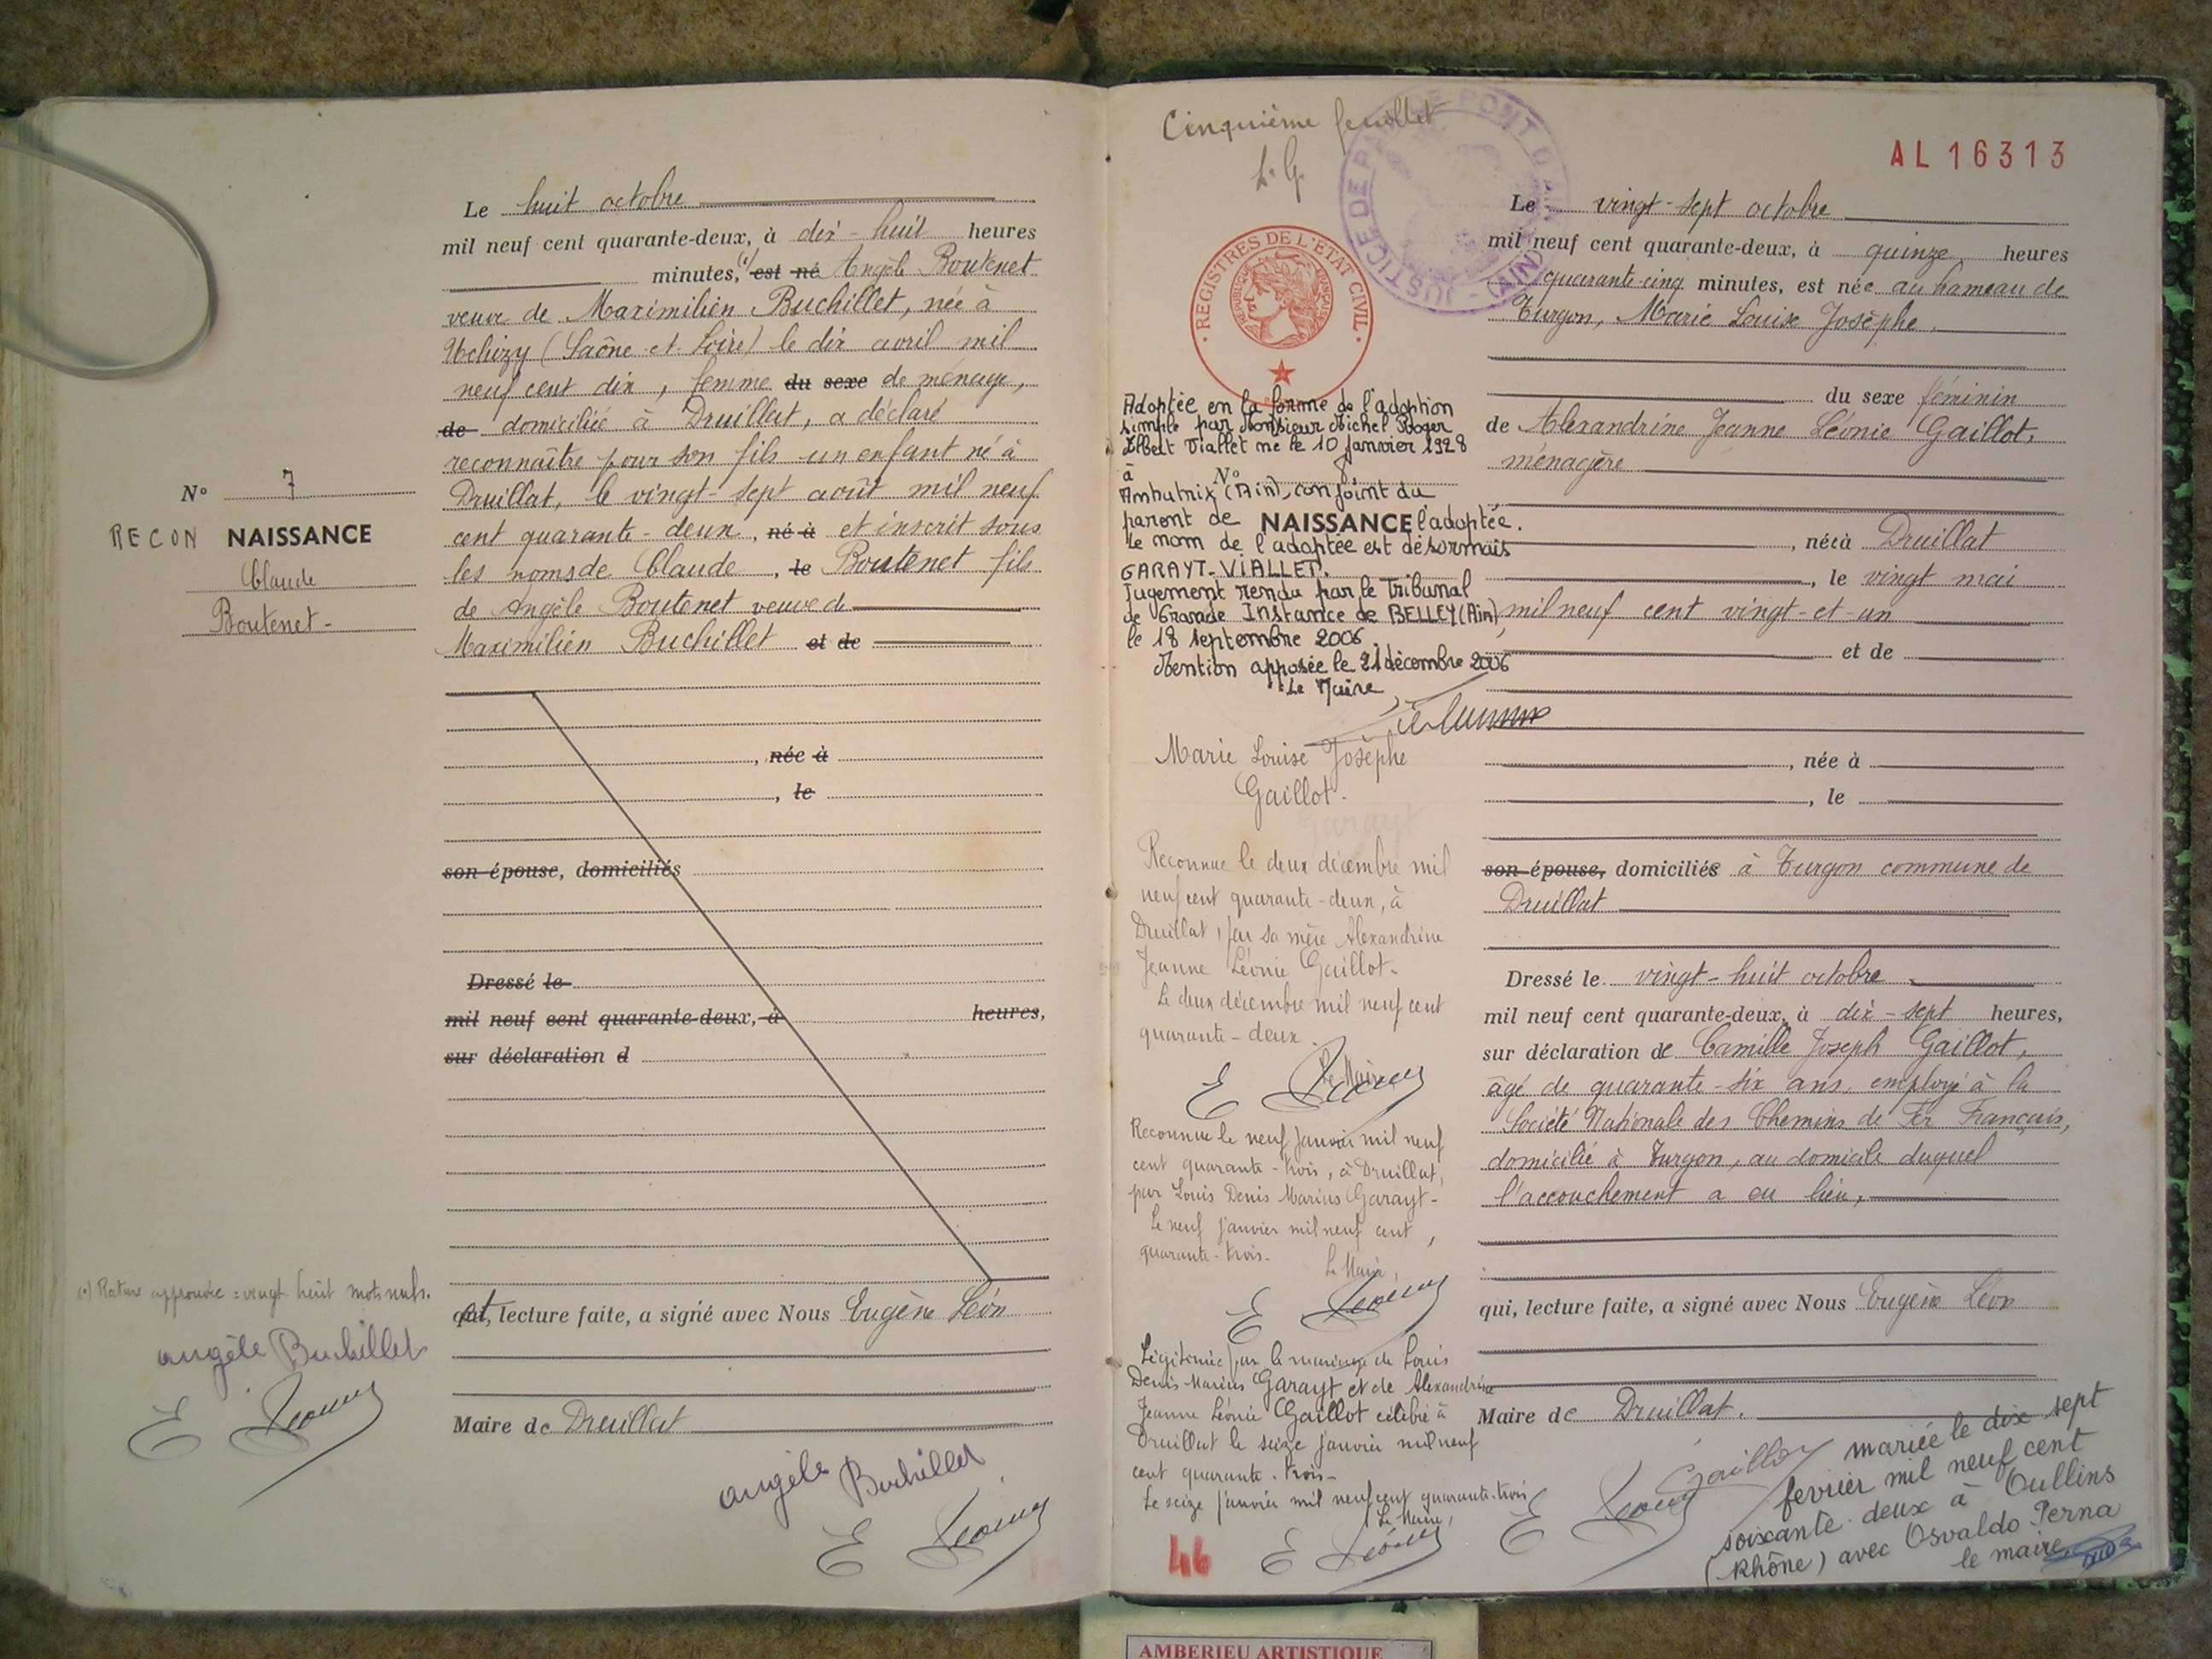 N° 7
RECONNAISSANCE
Claude
Boutenet-
Le huit octobre
mil neuf cent quarante-deux, à dix-huit heures
minutes, (1) est né Angèle Boutenet
veuve de Maximilien Buchillet, née à
Uchizy (Saône et Loire) le dix avril mil
neuf cent dix, femme du sexe de ménage,
de domiciliée à Druillat, a déclaré
reconnaître pour son fils un enfant né à
Druillat, le vingt-sept août mil neuf
cent quarante-deux, né à et inscrit sous
les noms de Claude, le Boutenet fils
de Angèle Boutenet veuve de
Maximilien Buchillet et de
, née à
, le
son épouse, domiciliés
Dressé le
mil neuf cent quarante-deux, à heures,
sur déclaration d
et, lecture faite, a signé avec Nous Eugène Léon
Maire de Druillat
(1) Rature approuvée = vingt huit mots nuls.
angèle Buchillet
E Léon
angèle Buchillet
E Léon
Cinquième feuillet
L. G.
JUSTICE DE PAIX DE PONT D'AIN (AIN)
REGISTRES DE L'ETAT CIVIL
REPUBLIQUE FRANÇAISE
AL 16313
Adoptée en la forme de l'adoption
simple par Monsieur Michel Roger
Albert Viallet né le 10 Janvier 1928
à N° 8
Ambutrix (Ain), conjoint du
parent de NAISSANCE l'adoptée.
Le nom de l'adoptée est désormais
GARAYT-VIALLET.
Jugement rendu par le Tribunal
de Grande Instance de BELLEY (Ain),
le 18 septembre 2006
Mention apposée le 21 décembre 2006
Le Maire
Marie Louise Josèphe
Gaillot.
Garayt
Reconnue le deux décembre mil
neuf cent quarante-deux, à
Druillat, par sa mère Alexandrine
Jeanne Léonie Gaillot.
Le deux décembre mil neuf cent
quarante-deux.
Le Maire
E Léon
Reconnue le neuf janvier mil neuf
cent quarante-trois, à Druillat,
par Louis Denis Marius Garayt-
Le neuf janvier mil neuf cent
quarante-trois-
Le Maire,
E Léon
Légitimée par le mariage de Louis
Denis Marius Garayt et de Alexandrine
Jeanne Léonie Gaillot célébré à
Druillat le seize janvier mil neuf
cent quarante-trois-
Le seize janvier mil neuf cent quarante-trois
Le Maire,
E Léon
46
Le vingt-sept octobre
mil neuf cent quarante-deux, à quinze heures
quarante-cinq minutes, est née au hameau de
Turgon, Marie Louise Josèphe
du sexe féminin
de Alexandrine Jeanne Léonie Gaillot,
ménagère
, née à Druillat
, le vingt mai
mil neuf cent vingt-et-un
et de
, née à
, le
son épouse, domiciliés à Turgon commune de
Druillat
Dressé le vingt-huit octobre
mil neuf cent quarante-deux, à dix-sept heures,
sur déclaration de Camille Joseph Gaillot,
âgé de quarante-six ans, employé à la
Société Nationale des Chemins de Fer Français,
domicilié à Turgon, au domicile duquel
l'accouchement a eu lieu,
qui, lecture faite, a signé avec Nous Eugène Léon
Maire de Druillat.
Gaillot
E Léon
mariée le dix sept
fevrier mil neuf cent
soixante deux à Oullins
(Rhône) avec Osvaldo Perna
le maire
AMBERIEU ARTISTIQUE